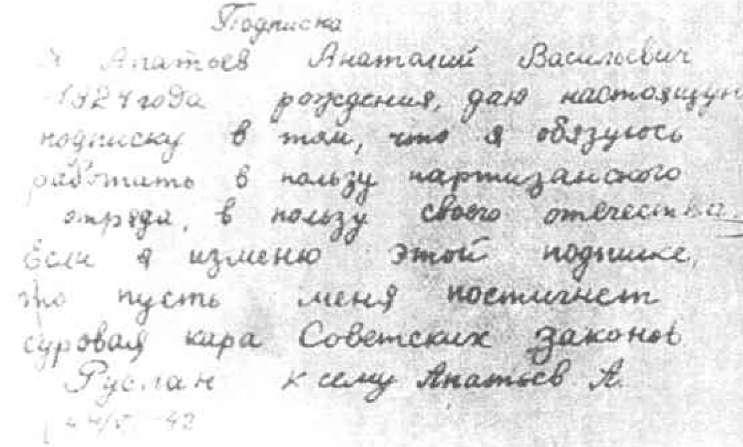 Подписка
Я Апатьев Анатолий Васильевич
1924 года рождения, даю настоящую
подписку в том, что я обязуюсь
работать в пользу партизанского
отряда, в пользу своего отечества.
Если я изменю этой подписке,
то пусть меня постигнет
суровая кара Советских законов
Руслан к сему Апатьев А.